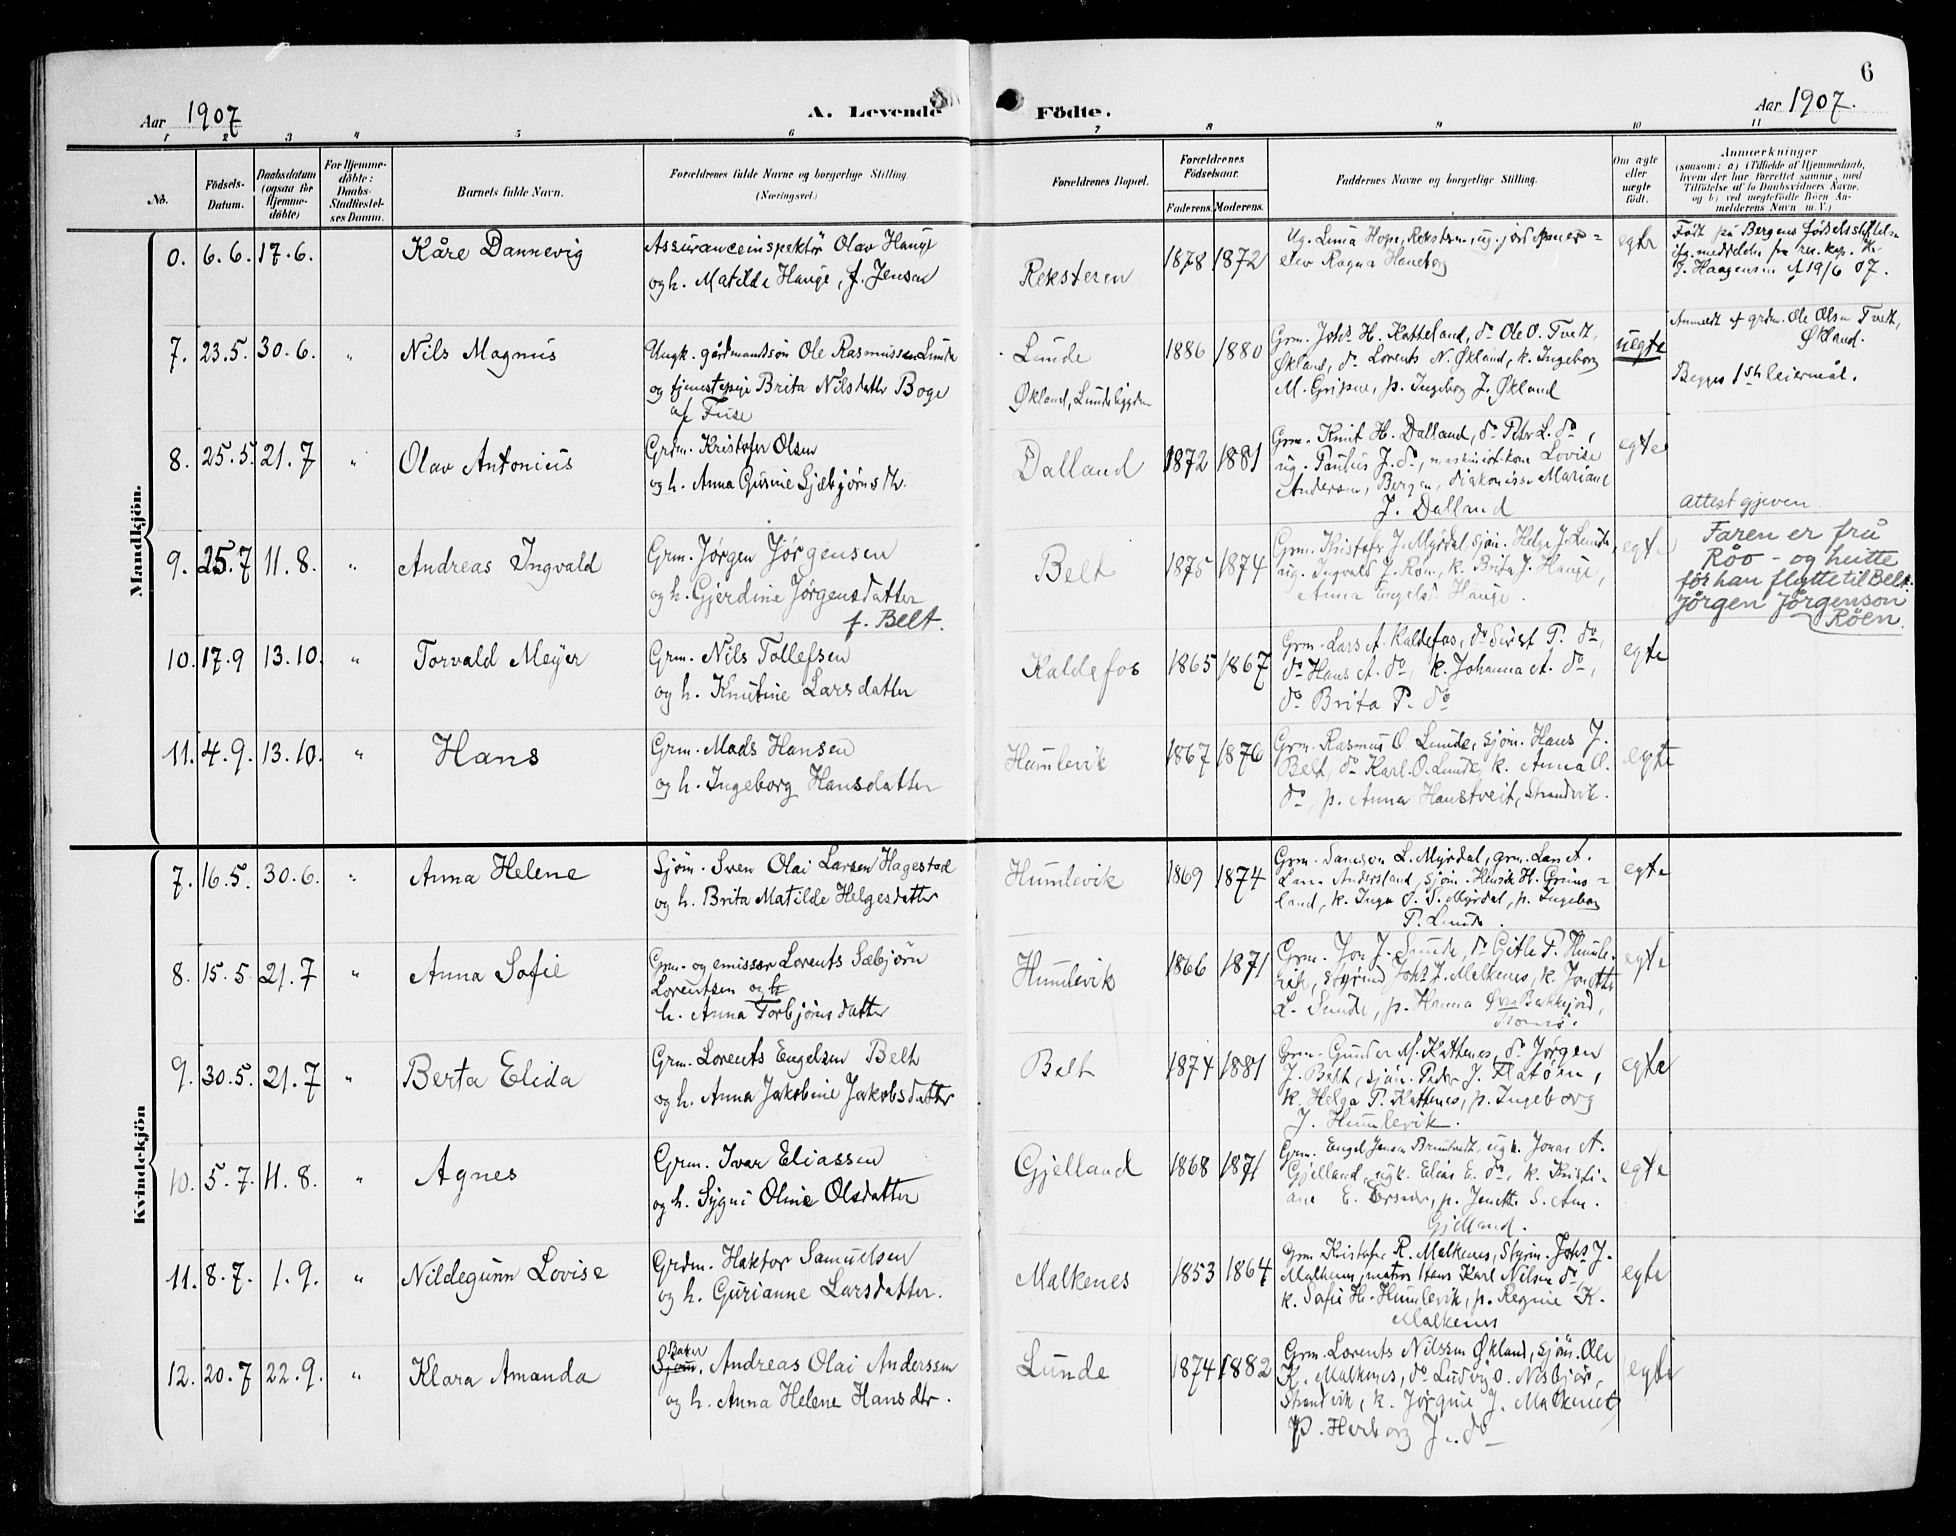 6
Aar 1907 A. Levende Födte. Aar 1907.
1 2 3 4 5 6 7 8 9 10 11
No.
Födsels-
Datum.
Daabsdatum
(ogsaa for
Hjemme-
døbte)
For Hjemme-
døbte:
Daabs-
Stadfæstel-
ses Datum.
Barnets fulde Navn.
Forældrenes fulde Navne og borgerlige Stilling.
(Næringsvei.)
Forældrenes Bopæl.
Forældrenes
Födselsaar.
Faderens. Moderens.
Faddernes Navne og borgerlige Stilling.
Om ægte
eller
uægte
født.
Anmærkninger
(saasom: a) i Tilfælde af Hjemmedaab,
hvem der har forrettet samme, med
Tilføielse af to Daabsvidners Navne,
og b) ved uægtefødte Børn An-
melderens Navn m. V.)
Mandkjön.
0. 6.6. 17.6. Kåre Dannevig
Assuranceinspektör Olav Hauge
og h. Matilde Hauge, f. Jensen
Reksteren 1878 1872
Ug. Lina Hope, Reksteren, ug. jordmoder=
elev Ragna Haueberg
egte
Födt på Bergens födselsstiftelse
ifg. meddelelse fra res. kap. K.
J. Haagensen af 19/6 07.
7. 23.5. 30.6. " Nils Magnus
Ungk. gårdmandssön Ole Rasmussen Lunde
og tjenestepige Brita Nilsdatter Boge
af Fuse
Lunde
Økland, Lundebygden
1886 1880
Grm. Johs H. Katteland, do Ole O. Tveit,
Økland, do Lorents N. Økland, k. Ingeborg
M. Gripne, p. Ingeborg J. Økland
uegte
Anmeldt af grdm. Ole Olsen Tveit,
Økland.
Begges 1ste leiermål.
8. 25.5. 21.7 " Olav Antonius
Grdm. Kristofer Olsen
og h. Anna Gurine Sjæbjørnsdtr.
Dalland 1872 1881
Grm. Knut H. Dalland, do Peter L. do,
ug. Paulus J. do, maskinist-kone Lovise
Andersen, Bergen, diakonisse Mariane
J. Dalland
egte
attest gjeven.
9. 25.7 11.8. " Andreas Ingvald
Grm. Jørgen Jørgensen
og h. Gjerdine Jørgensdatter
f. Belt.
Belt 1875 1874
Grm. Kristofer J. Myrdal, sjöm. Helge J. Lunde,
ug. Ingvald J. Röen, k. Brita J. Hauge,
Anna Engelsd. Hauge.
egte
Faren er frå
Röo - og heitte
för han flytte til Belt:
Jørgen Jørgenson
Röen.
10. 17.9 13.10. " Torvald Meyer
Grm. Nils Tollefsen
og h. Knutine Larsdatter
Kaldefos 1865 1867
Grm. Lars A. Kaldefos, do Sivert P. do,
do Hans A. do, k. Johanna A. do,
do Brita P. do
egte
11. 4.9. 13.10. " Hans
Grm. Mads Hansen
og h. Ingeborg Hansdatter
Humlevik 1867 1876
Grm. Rasmus O. Lunde, sjöm. Hans J.
Belt, do Karl O. Lunde, k. Anna O.
do, p. Anna Haustveit, Strandvik.
egte
Kvindekjön
7. 16.5. 30.6. " Anna Helene
Sjöm. Sven Olai Larsen Hagestad
og h. Brita Matilde Helgesdatter
Humlevik 1869 1874
Grm. Samson L. Myrdal, grm. Lars A.
Andersland, sjöm. Henrik H. Grims=
land, k. Inga S. Myrdal, p. Ingeborg
P. Lunde.
egte
8. 15.5 21.7 " Anna Sofie
Grm. og emissær Lorents Sæbjørn
Lorentsen og h
h. Anna Torbjørnsdatter
Humlevik 1866 1871
Grm. Jon J. Lunde, do Gitle P. Humle-
vik, styrmd Johs J. Malkenes, k. Jonette
L. Lunde, p. Hanna Øvre Bakkejord,
Tromsö.
egte
9. 30.5. 21.7 " Berta Elida
Grm. Lorents Engelsen Belt
og h. Anna Jakobine Jakobsdatter
Belt 1874 1881
Grm. Gunder M. Kattenes, do Jørgen
J. Belt, sjöm. Peder J. Flatöen,
k. Helga P. Kattenes, p. Ingeborg
J. Humlevik.
egte
10. 5.7. 11.8. " Agnes
Grm. Ivar Eliassen
og h. Sygni Oline Olsdatter
Gjelland 1868 1871
Grm. Engel Jensen, ugk. Jonas A.
Gjelland, ugk. Elias E. do, k. Kristi-
ane E., p. Jenette S.
Gjelland.
egte
11. 8.7. 1.9. " Nildegunn Lovise
Grdm. Haktor Samuelsen
og h. Gurianne Larsdatter.
Malkenes 1853 1864
Grm. Kristofer R. Malkenes, Styrm. Johs J.
Malkenes, matros Hans Karl Nilsen do,
k. Sofie H. Humlevik, p. Regine K.
Malkenes
egte
12. 20.7 22.9. " Klara Amanda
Baker
Sjöm. Andreas Olai Andersen
og h. Anna Helene Hansdtr.
Lunde 1874 1882
Grm. Lorents Nilssen Økland, sjöm. Ole
K. Malkenes, do Ludvig O. Nesbjör,
Strandvik, k. Jörgine J. Malkenes
p. Herborg J. do
egte